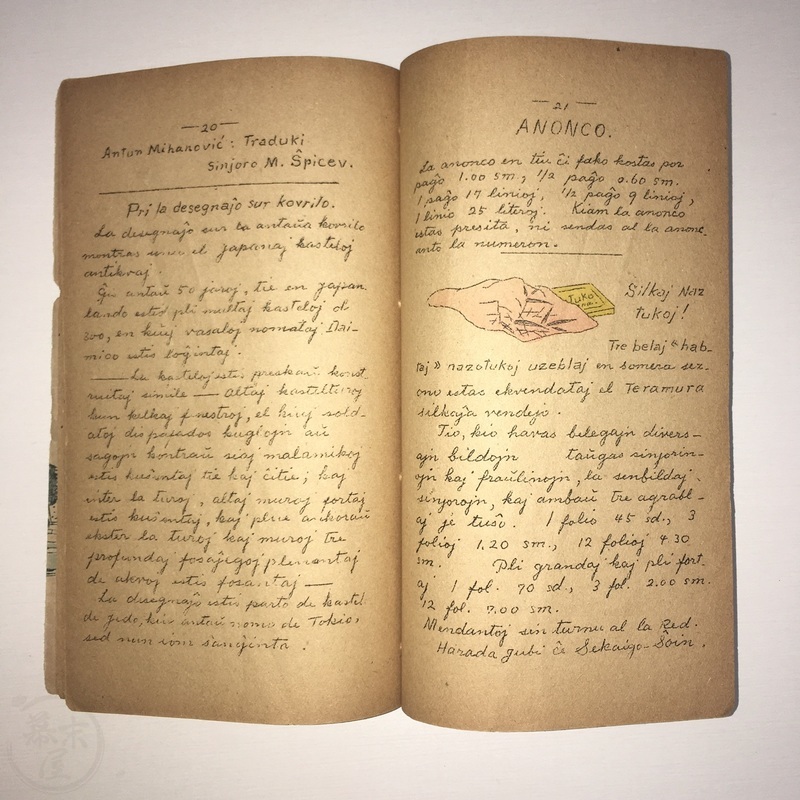 —20—
Antun Mihanović: Traduki
Sinjoro M. Ŝpicev.
Pri la desegnaĵo sur kovrilo.
La desegnaĵo sur la antaŭa kovrilo
montras unu el japanaj kasteloj
antikvaj.
Ĝis antaŭ 50 jaroj, tie en japan-
lando estis pli multaj kasteloj ol
300, en kiuj vasaloj nomataj Dai-
mioo estis loĝintaj.
— La kasteloj estis preskaŭ konst-
ruitaj simile — altaj kastelturoj
kun kelkaj fenestroj, el kiuj sold-
atoj disponados kuglojn aŭ
sagojn kontraŭ siaj malamikoj
estis kuŝentaj tie kaj ĉitie; kaj
inter la turoj, altaj muroj fortaj
estis kuŝentaj, kaj plue ankoraŭ
ekster la turoj kaj muroj tre
profundaj fosaĵegoj plenontaj
de akvoj estis fosantaj —
La desegnaĵo estis parto de kastel
de jedo, kiu antaŭ nomo de Tokio,
sed nun iom ŝanĝinta.
—21—
ANONCO.
La anonco en tiu ĉi fako kostas por
paĝo 1.00 sm., 1/2 paĝo 0.60 sm.
1 paĝo 17 linioj, 1/2 paĝo 9 linioj,
1 linio 25 literoj. Kiam la anonco
estas presita, ni sendas al la anonc-
anto la numeron.
Tuko
Silkaj Naz
tukoj!
Tre belaj «hab-
taj» nazotukoj uzeblaj en somera sez-
ono estas ekvendataj el Teramura
silkaĵa vendejo.
Tio, kio havas belegajn divers-
ajn bildojn taŭgas sinjorin-
ojn kaj fraŭlinojn, la senbildaj
sinjorojn, kaj ambaŭ tre agrabl-
aj je tuŝo. 1 folio 45 sd., 3
folioj 1.20 sm., 12 folioj 4 30
sm. Pli grandaj kaj pli fort-
aj 1 fol. 70 sd., 3 fol. 2.00 sm.
12 fol. 7.00 sm.
Mendantoj sin turnu al la Red.
Harada Jubi ĉe Sekaigo-Ŝoin.